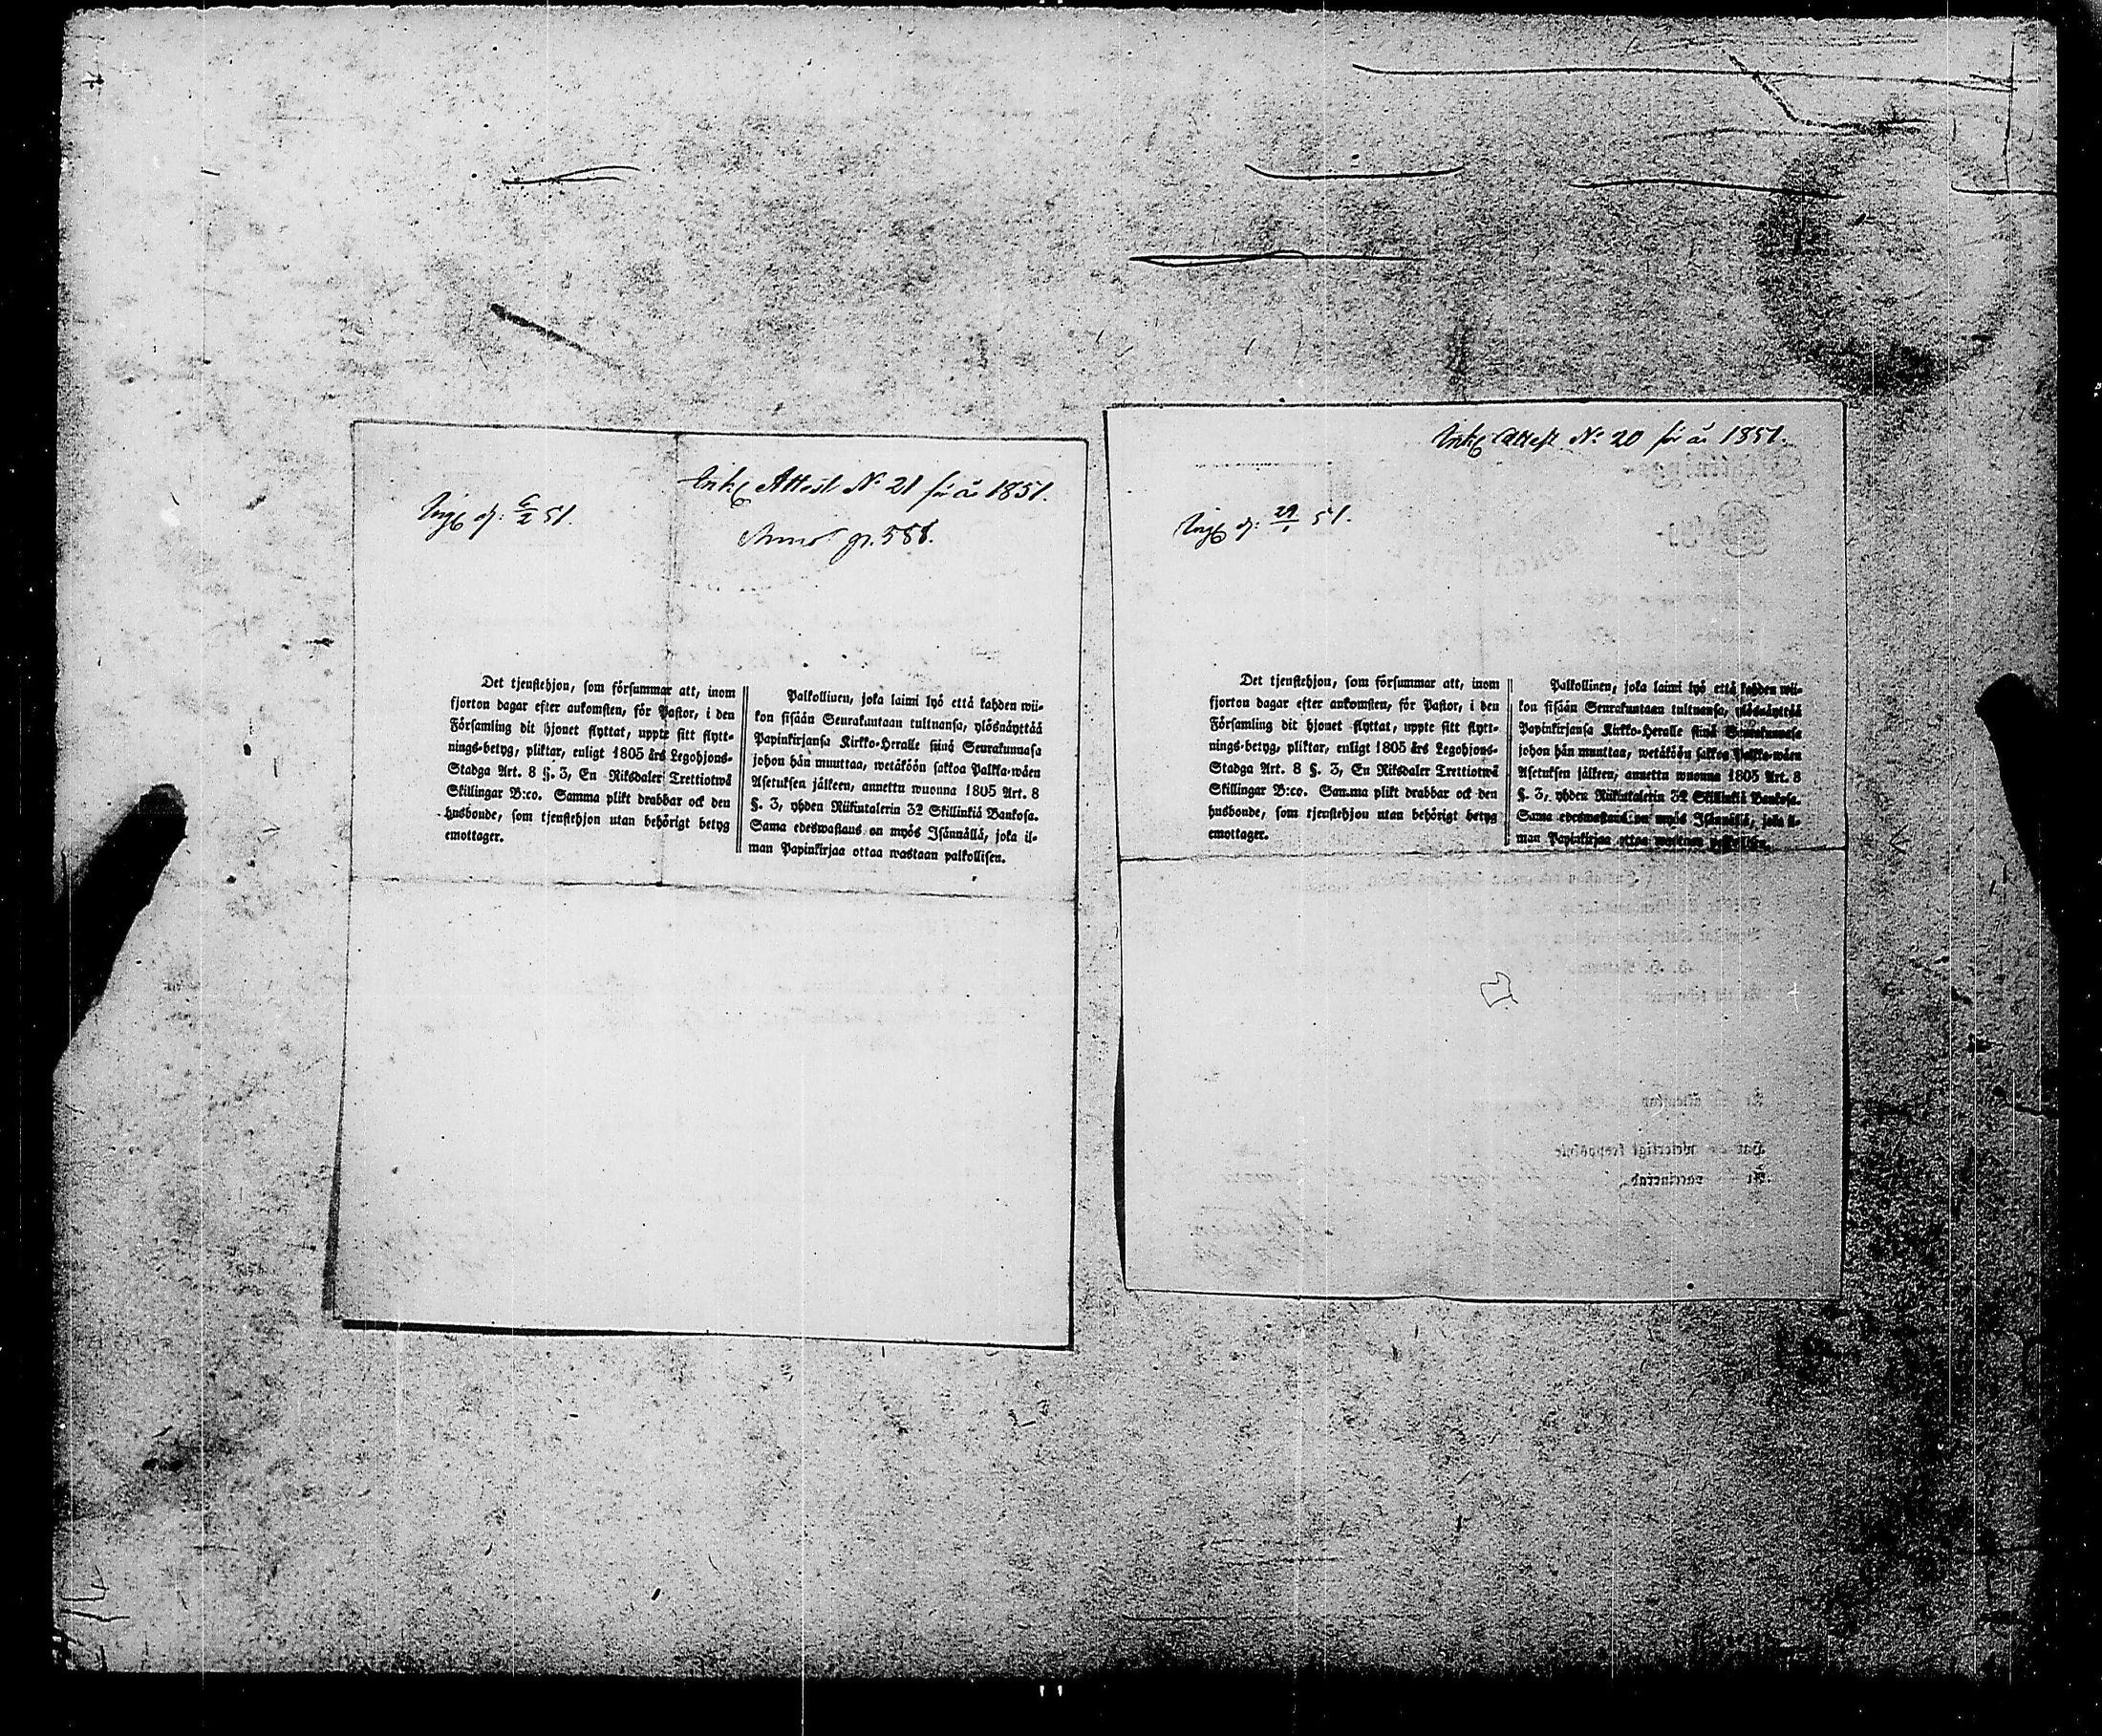 Inkg Attest No 21 för år 1851.
Ingg d: 6/2 51.
Anno p. 588.
Det tjenstehjon, som försummar att, inom
fjorton dagar efter ankomsten, för Pastor, i den
Församling dit hjonet flyttat, uppte sitt flytt-
nings-betyg, pliktar, enligt 1805 års Legohjons-
Stadga Art. 8 §. 3, En Riksdaler Trettiotwå
Skillingar B:co. Samma plikt drabbar ock den
husbonde, som tjenstehjon utan behörigt betyg
emottager.
Palkollinen, joka laimi lyö että kahden wii-
kon sisään Seurakuntaan tultuansa, ylösnäyttää
Papinkirjansa Kirkko-Heralle siinä Seurakunnasa
johon hän muuttaa, wetäköön sakkoa Palkka-wäen
Asetuksen jälkeen, annettu wuonna 1805 Art. 8
§. 3, yhden Riikintalerin 32 Skillinkiä Bankosa.
Sama edeswastaus on myös Isännällä, joka il-
man Papinkirjaa ottaa wastaan palkollisen.
Inkg Attest No 20 för år 1851.
Ingg d: 29/1 51.
Det tjenstehjon, som försummar att, inom
fjorton dagar efter ankomsten, för Pastor, i den
Församling dit hjonet flyttat, uppte sitt flytt-
nings-betyg, pliktar, enligt 1805 års Legohjons-
Stadga Art. 8 §. 3, En Riksdaler Trettiotwå
Skillingar B:co. Samma plikt drabbar ock den
husbonde, som tjenstehjon utan behörigt betyg
emottager.
Palkollinen, joka laimi lyö että kahden wii-
kon sisään Seurakuntaan tultuansa, ylösnäyttää
Papinkirjansa Kirkko-Heralle siinä Seurakunnasa
johon hän muuttaa, wetäköön sakkoa Palkka-wäen
Asetuksen jälkeen, annettu wuonna 1805 Art. 8
§. 3, yhden Riikintalerin 32 Skillinkiä Bankosa.
Sama edeswastaus on myös Isännällä, joka il-
man Papinkirjaa ottaa wastaan palkollisen.